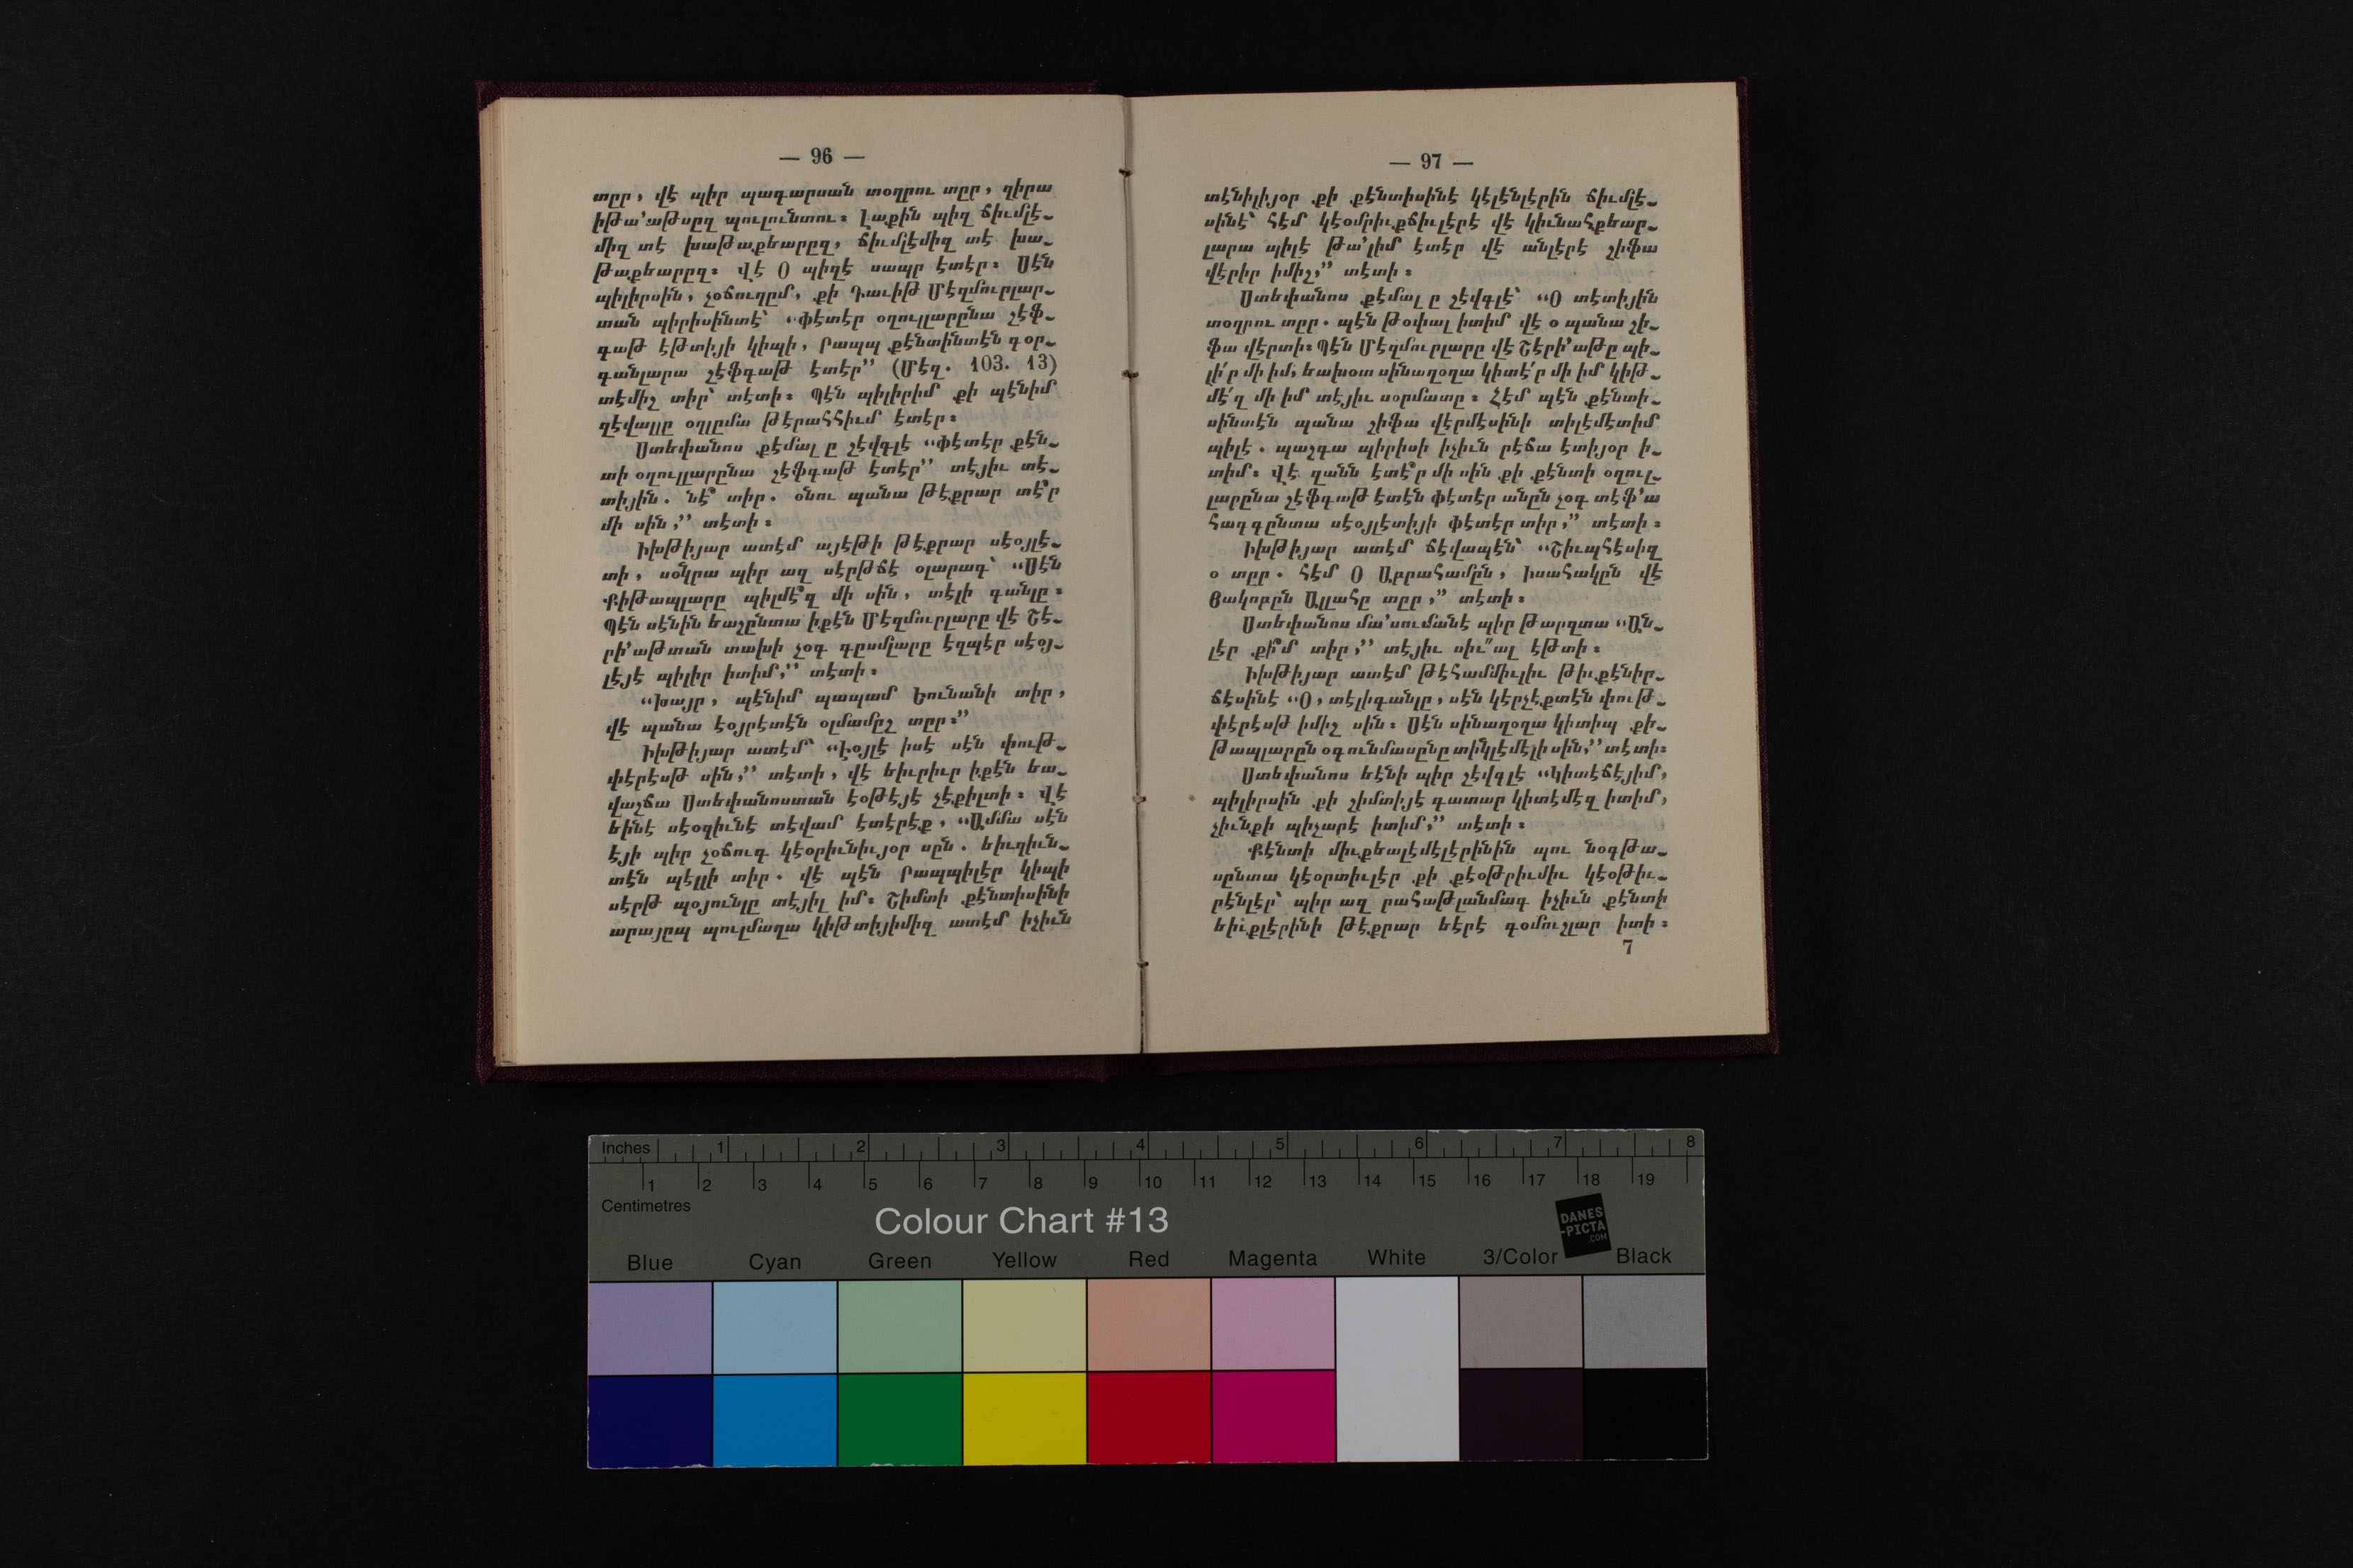 — 96 —
տըր, վէ պիր պագարսան տօղրու տըր, զիրա
իթա՚աթսըզ պուլունտու։ Լաքին պիզ ճիւմլէ-
միզ տէ խաթաքեարըզ, ճիւմլէմիզ տէ խա-
թաքեարըզ։ Վէ Օ պիզէ սապր էտէր։ Սէն
պիլիրսին, չօճուղըմ, քի Դաւիթ Մէզմուրլար-
տան պիրիսինտէ՝ “Փէտէր օղուլլարընա շէֆ-
գաթ էթտիյի կիպի, Րապպ քէնտինտէն գօր-
գանլարա շէֆգաթ էտէր” (Մէզ. 103. 13)
տէմիշ տիր՝ տէտի։ Պէն պիլիրիմ քի պէնիմ
զէվալլը օղլըմա թէրահհիւմ էտէր։
Ստեփանոս քէմալ ը շէվգլէ “Փէտէր քէն-
տի օղուլլարընա շէֆգաթ էտէր” տէյիւ տէ-
տիյին. նէ՞ տիր. օնու պանա թէքրար տէ՞ր
մի սին,” տէտի։
Իխթիյար ատէմ այէթի թէքրար սէօյլէ-
տի, սօնկրա պիր ազ սէրթճէ օլարագ՝ “Սէն
Քիթապլարը պիլմէ՞զ մի սին, տէլի գանլը։
Պէն սէնին եաշընտա իքէն Մէզմուրլարը վէ Շէ-
րի՚աթտան տախի չօգ գըսմլարը էզպէր սէօյ-
լէյէ պիլիր իտիմ,” տէտի։
“Խայր, պէնիմ պապամ Եունանի տիր,
վէ պանա էօյրէտէն օլմամըշ տըր։”
Իխթիյար ատէմ՝ “Էօյլէ իսէ սէն փութ-
փէրէսթ սին,” տէտի, վէ եիւրիւր իքէն եա-
վաշճա Ստեփանոստան էօթէյէ չէքիլտի։ Վէ
եինէ սէօզիւնէ տէվամ էտէրէք, “Ամմա սէն
էյի պիր չօճուգ կէօրիւնիւյօր սըն. եիւզիւն-
տէն պէլլի տիր. վէ պէն Րապպիլէր կիպի
սէրթ պօյունլը տէյիլ իմ։ Շիմտի քէնտիսինի
արայըպ պուլմաղա կիթտիյիմիզ ատէմ իչիւն
— 97 —
տէնիլիյօր քի քէնտիսինէ կէլէնլէրին ճիւմլէ-
սինէ՝ հէմ կէօմրիւքճիւլէրէ վէ կիւնահքեար-
լարա պիլէ թա՚լիմ էտէր վէ անլէրէ շիֆա
վէրիր իմիշ,” տէտի։
Ստեփանոս քէմալ ը շէվգլէ՝ “Օ տէտիյին
տօղրու տըր. պէն թօփալ իտիմ վէ օ պանա շի-
ֆա վէրտի։ Պէն Մէզմուրլարը վէ Շէրի՚աթը պի-
լի՛ր մի իմ, եախօտ սինաղօղա կիտէ՛ր մի իմ կիթ-
մէ՛զ մի իմ տէյիւ սօրմատը։ Հէմ պէն քէնտի-
սինտէն պանա շիֆա վէրմէսինի տիլէմէտիմ
պիլէ. պաշգա պիրիսի իչիւն րէճա էտիյօր ի-
տիմ։ Վէ զանն էտէ՞ր մի սին քի քէնտի օղուլ-
լարընա շէֆգաթ էտէն փէտէր անըն չօգ տէֆ՚ա
հագգընտա սէօյլէտիյի Փէտէր տիր,” տէտի։
Իխթիյար ատէմ ճէվապէն՝ “Շիւպհէսիզ
օ տըր. հէմ Օ Աբրահամըն, Իսահակըն վէ
Յակոբըն Ալլահը տըր,” տէտի։
Ստեփանոս մա՚սումանէ պիր թարզտա “Ան-
լէր քի՞մ տիր,” տէյիւ սիւ՚ալ էթտի։
Իխթիյար ատէմ թէհամմիւլիւ թիւքէնիր-
ճէսինէ “Օ, տէլիգանլը, սէն կէրչէքտէն փութ-
փէրէսթ իմիշ սին։ Սէն սինաղօղա կիտիպ Քի-
թապլարըն օգունմասընը տինկլէմէլի սին,” տէտի։
Ստեփանոս եէնի պիր շէվգլէ “Կիտէճէյիմ,
պիլիրսին քի շիմտիյէ գատար կիտէմէզ իտիմ,
չիւնքի պիչարէ իտիմ,” տէտի։
Քէնտի միւքեալէմէլէրինին պու նօգթա-
սընտա կէօրտիւլէր քի քէօթրիւմիւ կէօթիւ-
րէնլէր՝ պիր ազ րահաթլանմագ իչիւն քէնտի
եիւքլէրինի թէքրար եէրէ գօմուշլար իտի։
7
Inches 1 2 3 4 5 6 7 8
1 2 3 4 5 6 7 8 9 10 11 12 13 14 15 16 17 18 19
Centimetres
Colour Chart #13
DANES
-PICTA
.COM
Blue Cyan Green Yellow Red Magenta White 3/Color Black